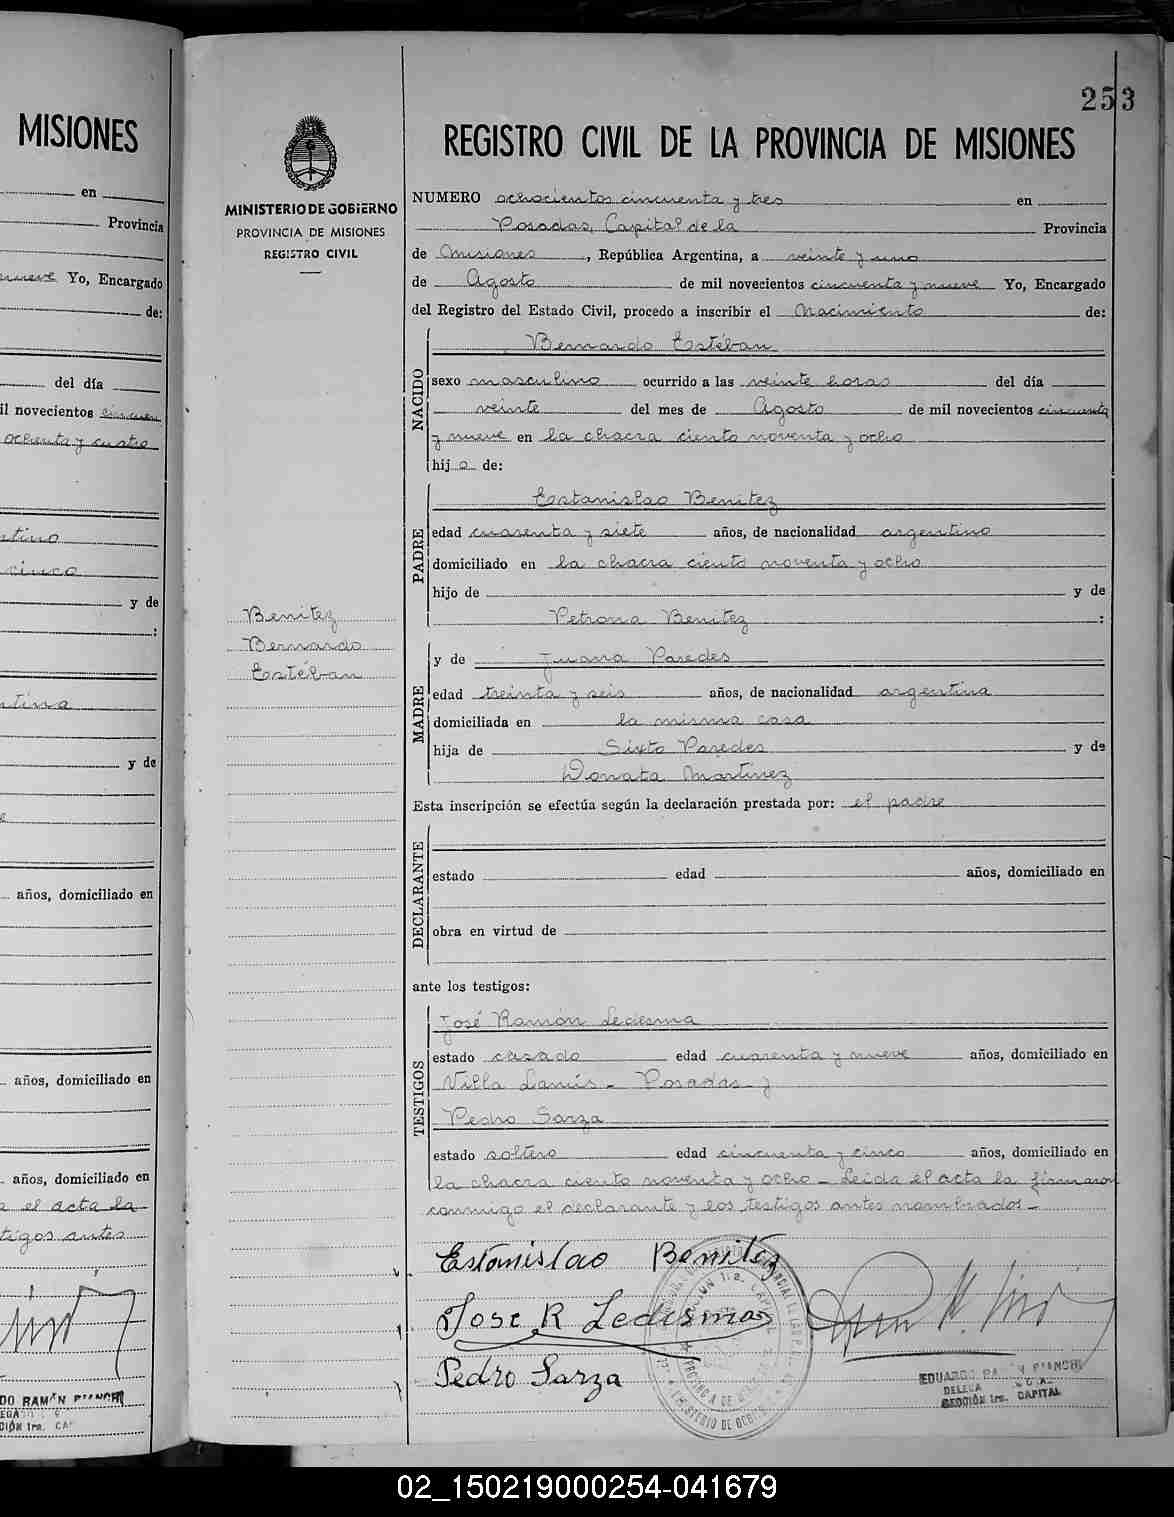 MISIONES
en
Provincia
nueve Yo, Encargado
de:
del día
il novecientos cincuen
ochenta y cuatro
tino
cinco
y de
:
tina
y de
años, domiciliado en
años, domiciliado en
años, domiciliado en
el acta la
tigos antes
DO RAMÓN BIANCHI
EGA
CIÓN 1ra. CA
MINISTERIO DE GOBIERNO
PROVINCIA DE MISIONES
REGISTRO CIVIL
Benitez
Bernardo
Estéban
253
REGISTRO CIVIL DE LA PROVINCIA DE MISIONES
NUMERO ochocientos cincuenta y tres en
Posadas, Capital de la Provincia
de Misiones, República Argentina, a veinte y uno
de Agosto de mil novecientos cincuenta y nueve Yo, Encargado
del Registro del Estado Civil, procedo a inscribir el Nacimiento de:
NACIDO
Bernardo Estéban
sexo masculino ocurrido a las veinte horas del día
veinte del mes de Agosto de mil novecientos cincuenta
y nueve en la chacra ciento noventa y ocho
hijo de:
PADRE
Estanislao Benitez
edad cuarenta y siete años, de nacionalidad argentino
domiciliado en la chacra ciento noventa y ocho
hijo de y de
Petrona Benitez :
MADRE
y de Juana Paredes
edad treinta y seis años, de nacionalidad argentina
domiciliada en la misma casa
hija de Sixto Paredes y de
Donata Martinez
Esta inscripción se efectúa según la declaración prestada por: el padre
DECLARANTE
estado edad años, domiciliado en
obra en virtud de
ante los testigos:
TESTIGOS
José Ramón Ledesma
estado casado edad cuarenta y nueve años, domiciliado en
Villa Lanús - Posadas - y
Pedro Sarza
estado soltero edad cincuenta y cinco años, domiciliado en
la chacra ciento noventa y ocho - Leída el acta la firmaron
conmigo el declarante y los testigos antes nombrados -
Estanislao Benitez
Jose R Ledesma
Pedro Sarza
EDUARDO RAMÓN BIANCHI
DELEGA
SECCIÓN 1ra. CAPITAL
02_150219000254-041679